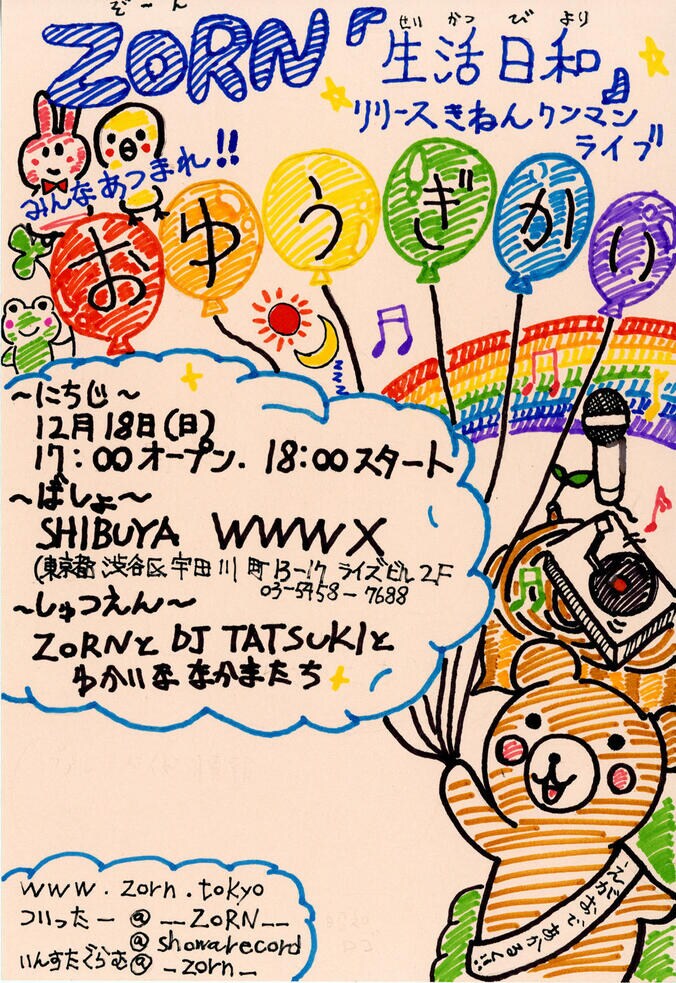 ぞーん
せいかつびより
ZORN『生活日和』
リリースきねんワンマン
ライブ
みんなあつまれ!!
おゆうぎかい
zzz
~にちじ~
12月18日(日)
17:00オープン. 18:00スタート
~ばしょ~
SHIBUYA WWW X
(東京都渋谷区宇田川町13-17 ライズビル2F
03-5458-7688
~しゅつえん~
ZORNと DJ TATSUKIと
ゆかいな なかまたち
えがおで あかるく!!
www.zorn.tokyo
ついったー @__ZORN__
@showarecord
いんすたぐらむ@_zorn_